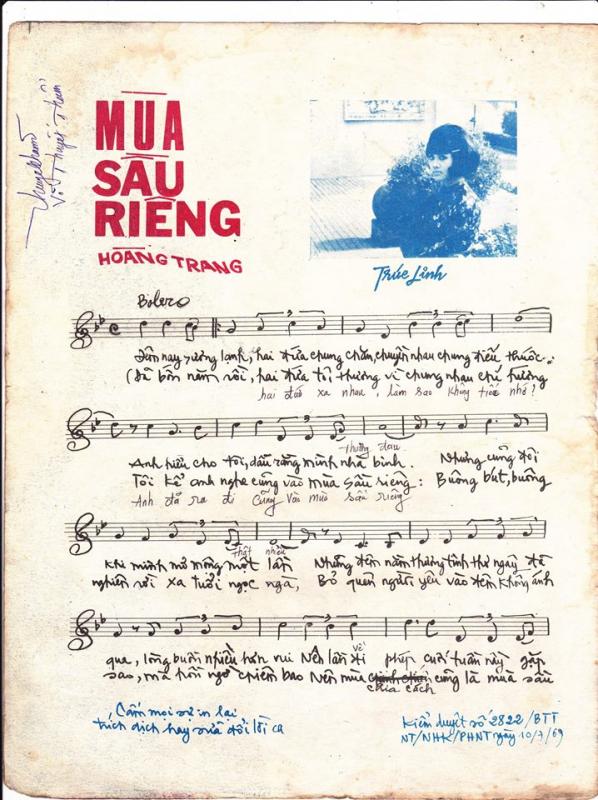 MÙA
SẦU
RIÊNG
HOÀNG TRANG
Trúc Linh
Bolero
Đêm nay sương lạnh, hai đứa chung chăn, chuyện nhau chung điếu thuốc..
(Đã bốn năm rồi, hai đứa tôi thương vì chung nhau chí hướng
hai đứa xa nhau, làm sao không tiếc nhớ?
thường đau
Anh hiểu cho tôi, dẫu rằng mình nhà binh. Nhưng cũng đôi
Tôi kể anh nghe cũng vào mùa sầu riêng: Buông bút, buông
Anh đã ra đi cũng vào mùa sầu riêng
thật nhiều
khi mình mơ mộng một lần Những đêm nằm thương tình thư ngày đã
nghiên rồi xa tuổi ngọc ngà, Bỏ quên người yêu vào đêm không ánh
về
qua, lòng buồn nhiều hơn vui Nên lần đi phép cuối tuần này gặp
sao, mà hồi ngỡ chiêm bao Nên mùa cũng là mùa sầu
chia cách
Cấm mọi sự in lại
trích dịch hay sửa đổi lời ca
Kiểm duyệt số 2822/BTT
NT/NHK/PHNT ngày 10/7/69